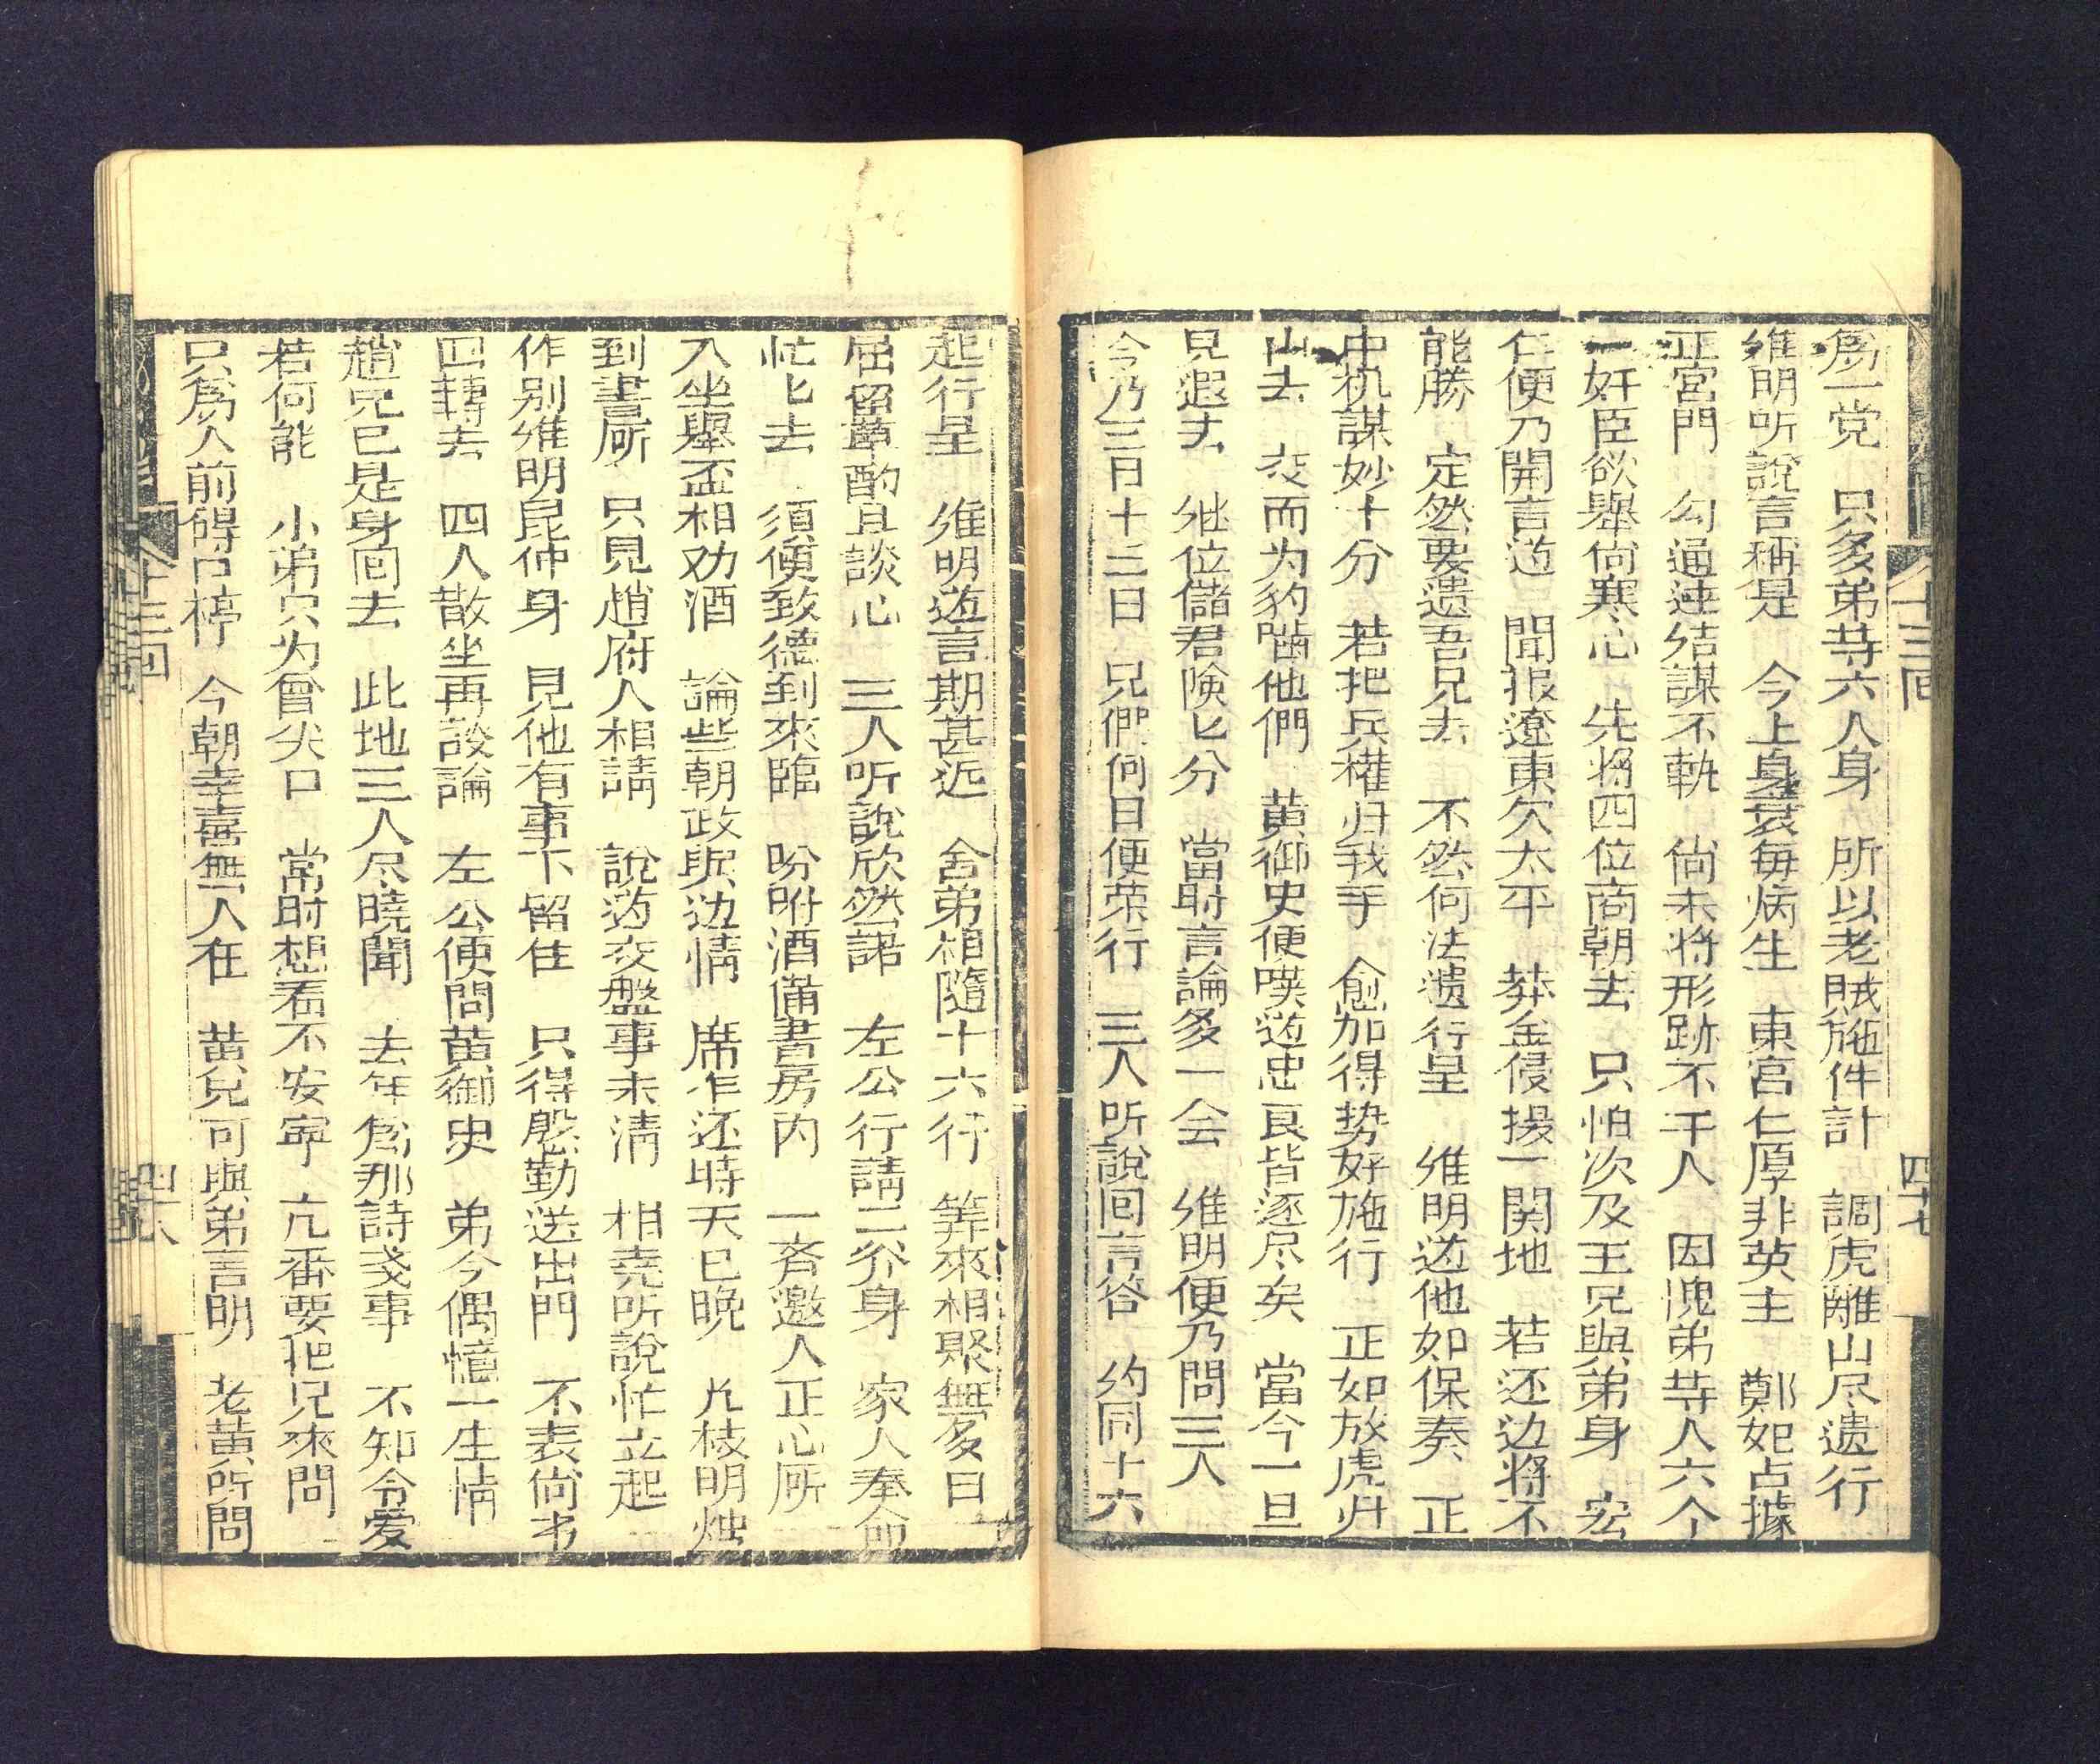 十三回
四十七
為一党　只多弟等六人身　所以老賊施件計　調虎離山尽遣行
維明听説言稱是　今上身衰每病生　東宮仁厚非英主　鄭妃占據
正宮門　勾通連结謀不軌　倘未將形跡不干人　因愧弟等人六个
一奸臣欲舉尙寒心　先将四位商朝去　只怕次及王兄與弟身　宏
仁便乃開言道　聞报遼東欠太平　莽金侵擾一関地　若还边将不
能勝　定然要遣吾兄去　不然何法遣行呈　維明道他如保奏　正
中机謀妙十分　若把兵權归我手　愈加得势好施行　正如放虎归
山去　交而为豹啮他們　黄御史便嘆道忠良皆逐尽矣　當今一旦
見遐去　继位儲君険匕分　當时言論多一会　維明便乃問三人
今乃三月十三日　兄們何日便荣行　三人听説回言答　约同十六
起行呈　維明道言期甚近　舍弟相隨十六行　筭來相聚無多日
屈留草酌且談心　三人听説欣然諾　左公行請二弟身　家人奉命
忙匕去　須臾致德到來臨　吩咐酒備書房内　一齐邀人正心厮
入坐舉盃相劝酒　論些朝政與边情　席乍还時天已晚　几枝明烛
到書厮　只見趙府人相請　說道交盤事未清　相堯听說忙立起
作别維明昆仲身　見他有事不留住　只得慇勤送出門　不表尙书
四轉去　四人散坐再談論　左公便問黄御史　弟今偶憶一生情
趙兄已是身回去　此地三人尽曉聞　去年為那詩戔事　不知令爱
若何能　小弟只为曾尖口　常时想着不安寧　亢番要把兄來問
只為人前碍口停　今朝幸喜無人在　黄兄可與弟言明　老黄听問
十三回
四十八